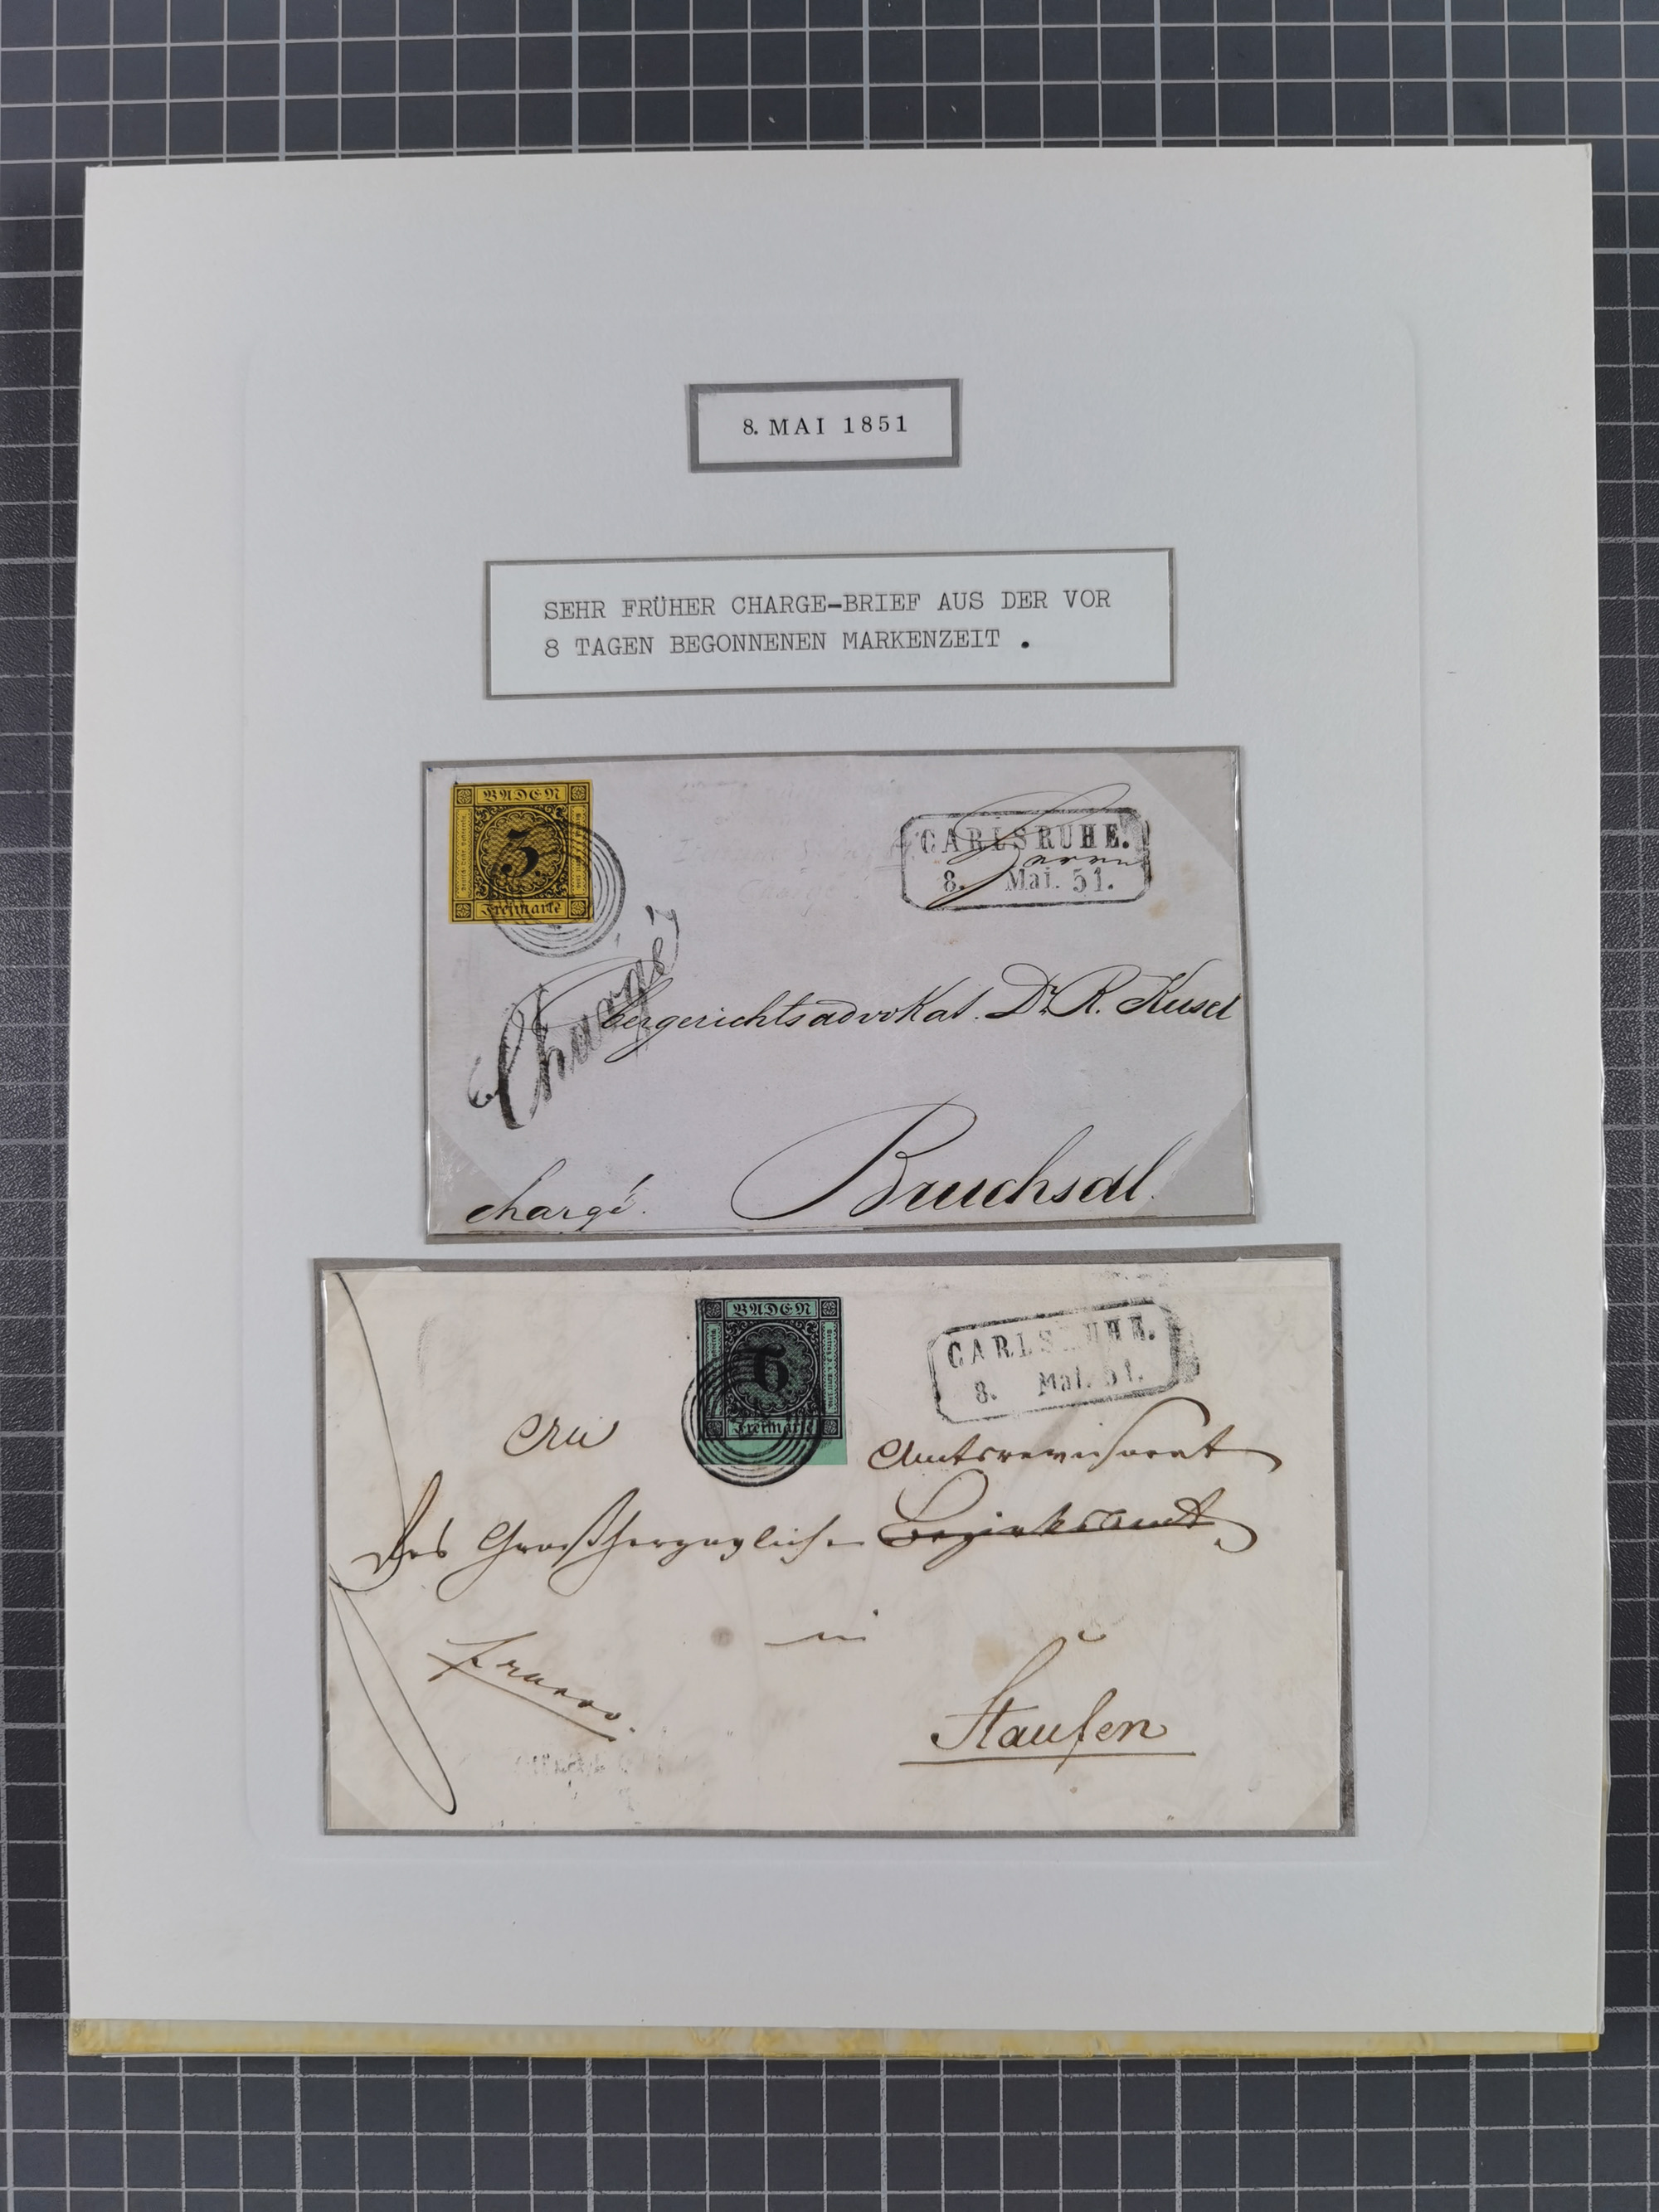 8. MAI 1851
SEHR FRÜHER CHARGE-BRIEF AUS DER VOR
8 TAGEN BEGONNENEN MARKENZEIT .
BADEN
3
Freimarke
CARLSRUHE.
8. Mai. 51.
Herrn
Chargé
Obergerichtsadvokat. Dr. R. Kusel
Bruchsal
chargé.
BADEN
6
Freimarke
CARLSRUHE.
8. Mai. 51.
An
Amtsrevisorat
Das Großherzogliche Bezirksamt
Franco.
in
Staufen